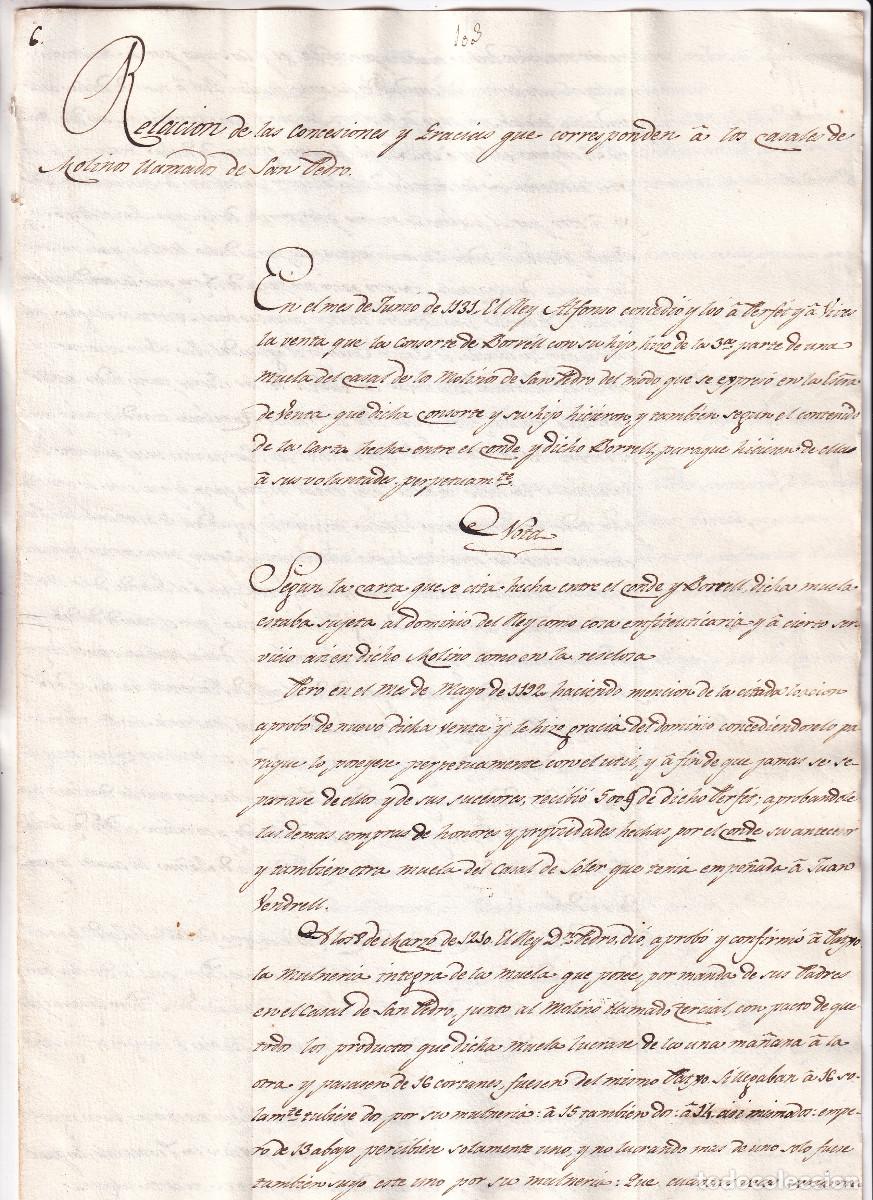 6.
103
Relacion de las Concesiones y Gracias que corresponden â los casales de
Molinos llamados de San Pedro.
En el mes de Junio de 1131. El Rey Alfonso concedió y loó â Perfet y â Vives
la venta que la Consorte de Borrell con su hijo hizo de la 3ª parte de una
muela del casal de los Molinos de San Pedro del modo que se expresó en la
de Venta que dicha Consorte y su hijo hicieron, y tambien segun el contenido
de la Carta hecha entre el Conde y dicho Borrell, paraque hiciesen de ella
â sus voluntades, perpetuamte.
Nota
Segun la carta que se cita hecha entre el Conde y Borrell, dicha muela
estaba sujeta al dominio del Rey como cosa enfiteuticaria y â cierto ser-
vicio asi en dicho Molino como en la resclosa
Pero en el Mes de Mayo de 1192 haciendo mencion de la citada
aprobó de nuevo dicha venta y le hizo gracia del dominio concediendoselo pa-
raque lo poseyese perpetuamente con el util, y â fin de que jamas se se-
parase de ellos y de sus sucesores, recibió 500 de dicho Perfet, aprobandole
las demas compras de honores y propiedades hechas por el Conde su antecesor
y tambien otra muela del Casal de Soler que tenia empeñada â Juan
Vendrell.
A los 8 de Marzo de 1210. El Rey Dn Pedro, dió, aprobó y confirmó â
la Mulneria integra de la muela que posee por manda de sus Padres
en el Casal de San Pedro, junto al Molino llamado Tercial, con pacto de que
todos los productos que dicha muela lucrase de la una mañana â la
otra y pasasen de 16 cortanes, fuesen del mismo Si llegaban â 16 so-
lamte tubiese dos por su mulneria: â 15 tambien dos: â 14 asi mismo dos: empe-
ro de 13 abajo percibiese solamente uno, y no lucrando mas de uno solo fuese
tambien suyo este uno por su mulneria: Que
todocoleccion